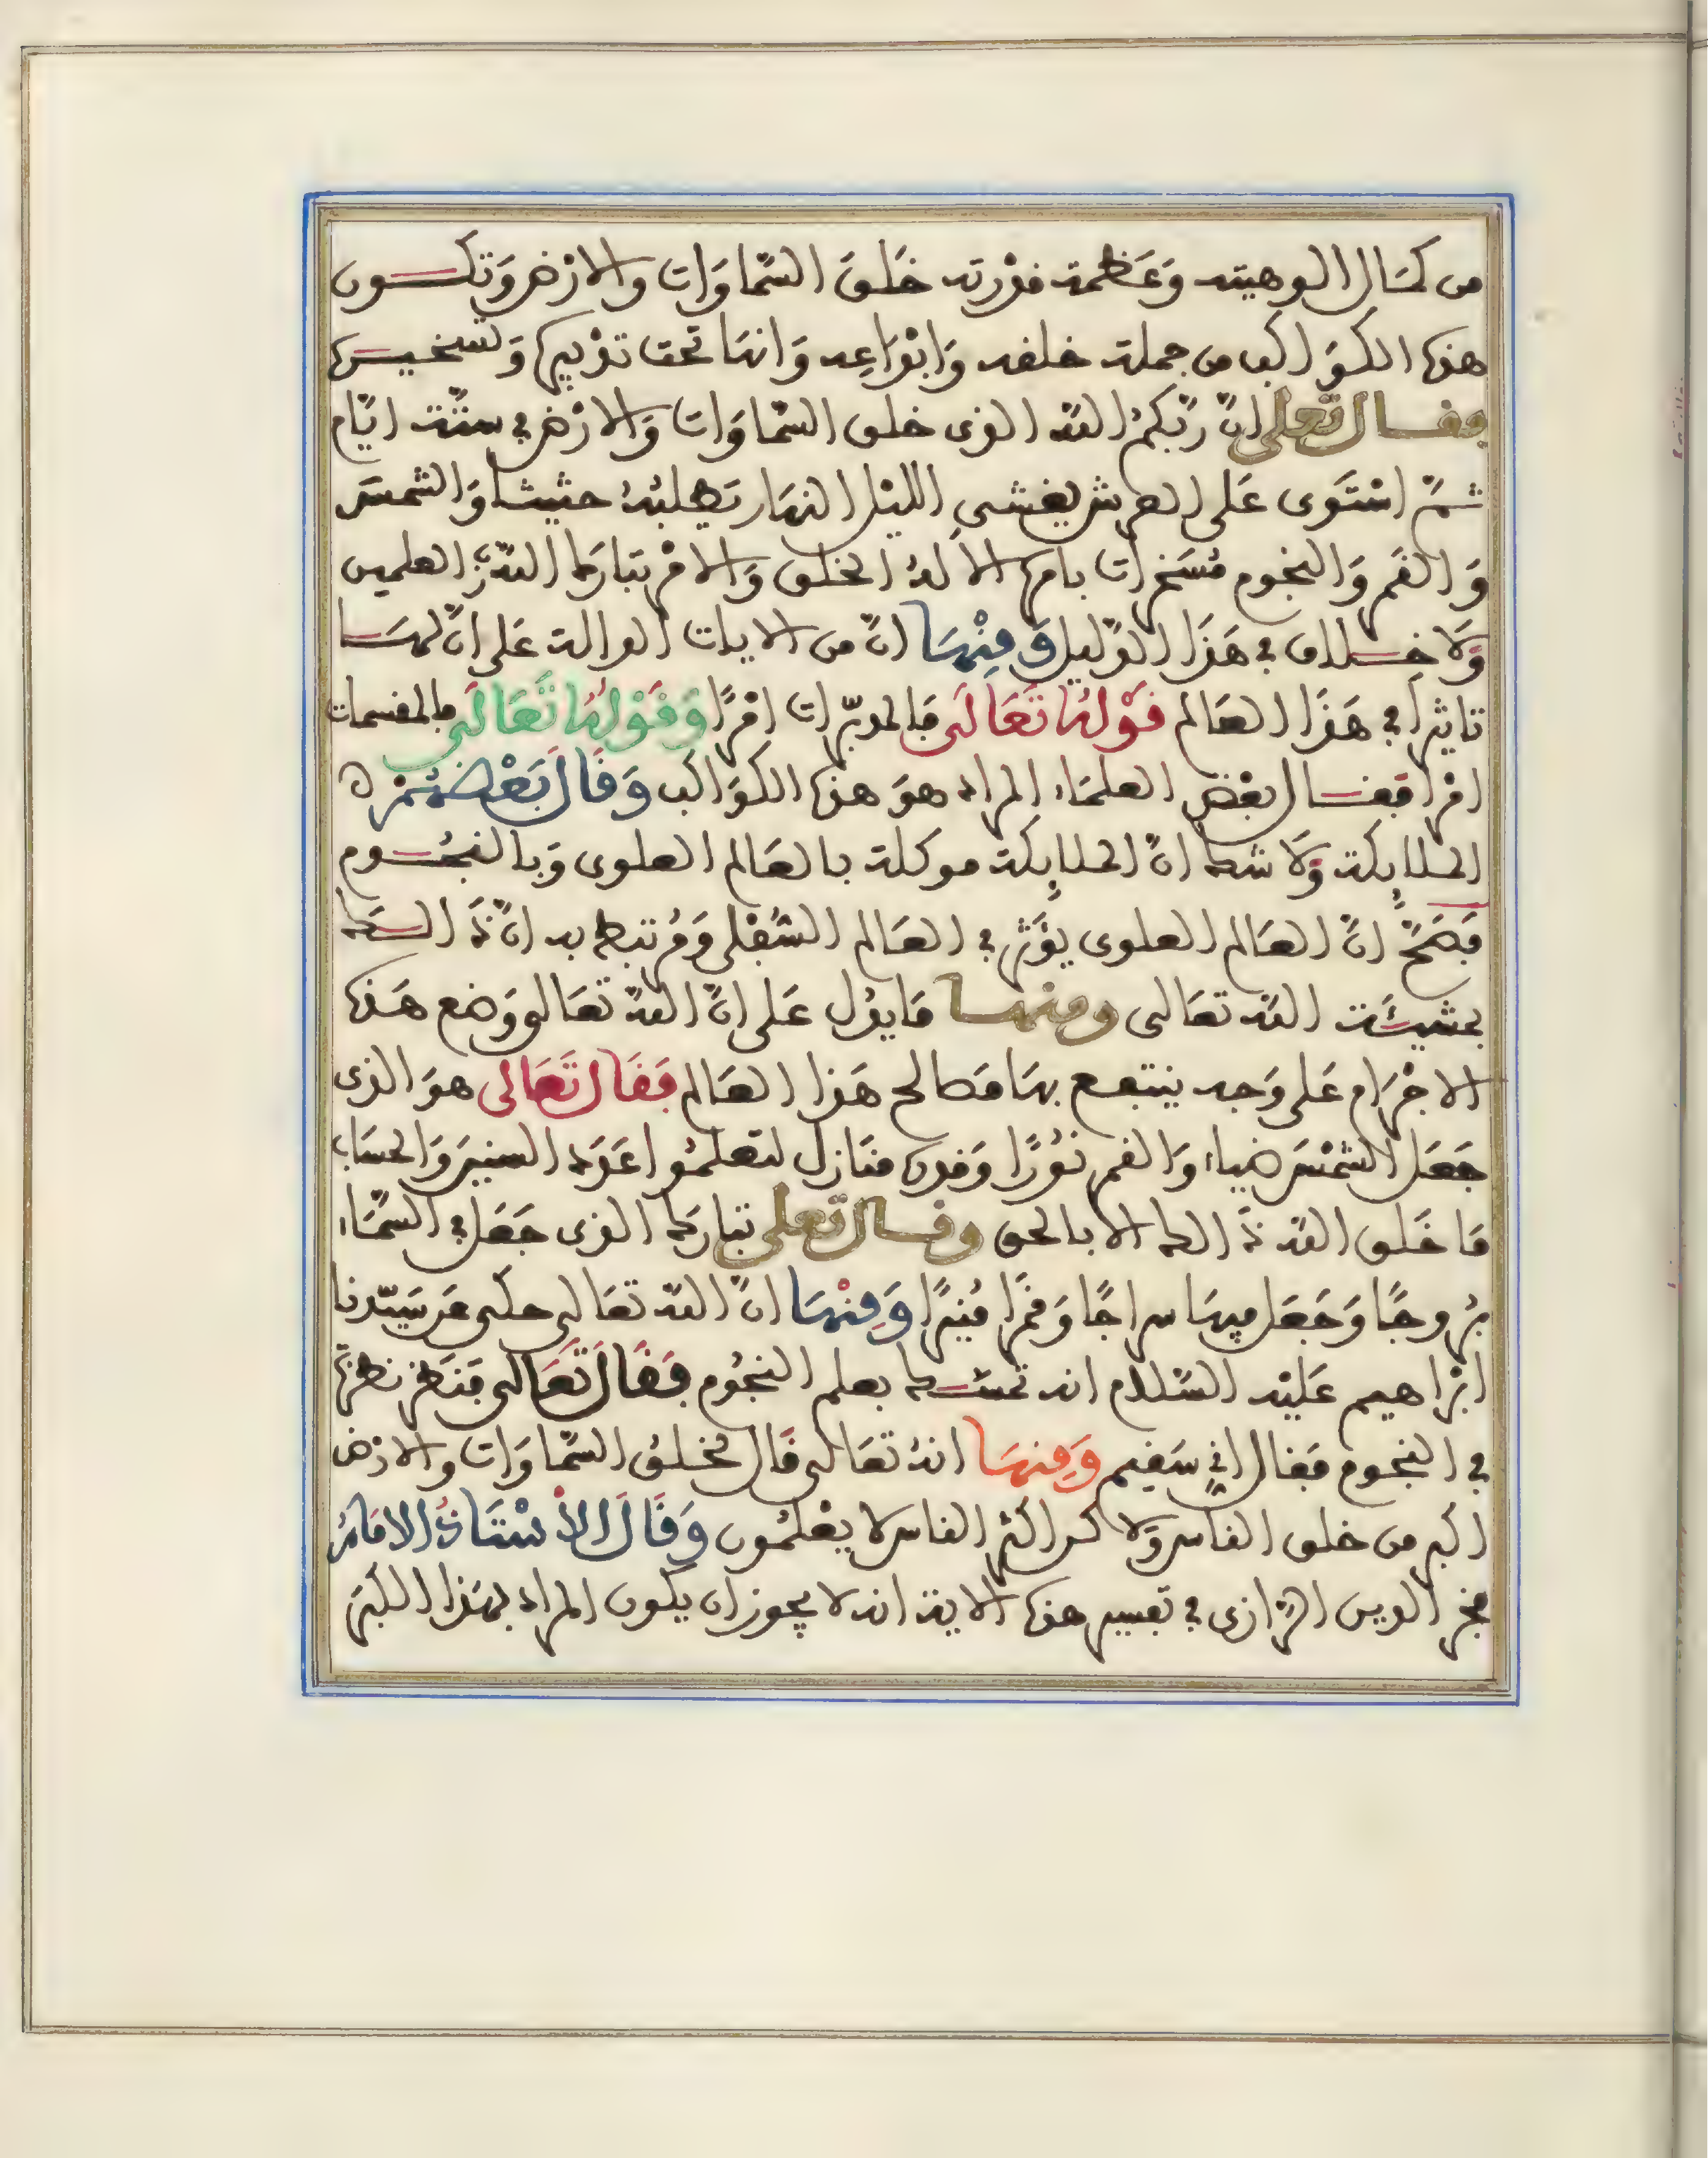 من كمال الوهيته وَعَظمة قدْرته خَلق السّماوَات والارْض وَتكون
هذه الكوَاكب من جملة خلقه وَابْدَاعِه وَانها تحت تدْبيره وَتسخيره
فقال تعلى انّ رَبّكمُ اللّه الذى خلق السّماوَات وَالارْض في ستّة ايّام
ثمّ اسْتَوى عَلى العرش يغشى الليْل النهَار يَطلبُهُ حثيثا وَالشمسَ
وَالقمَر وَالنجُوم مُسَخرات بامره الاَ لهُ الخلق وَالامْر تبارَك اللّهُ ربّ العلمين
وَلا خلاف في هَذَا الدّليل وَمِنْهَا انّ من الايات الدالة عَلى انّ لهَا
تاثيرا في هَذَا العَالم قَوْلهُ تَعَالَى فَالمدبّرات امْرًا وَقَوْلُهُ تَعَالَى فالمقسمات
امْرا فقال بعْض العلمَاء المراد هوَ هذه الكوَاكب وَقَالَ بَعْضهُمْ ه
الملايكة وَلا شك انّ الملايِكة موكلة بالعَالم العلوى وَبالنجُوم
فَصَحّ انّ العَالم العلوى يؤَثر في العَالم السُّفْلى وَمُرتبط به انّ ذَالك
بمشيئَة اللّه تعَالى ومنها مَا يدُل عَلى انّ اللّهَ تعَالى وَضع هَذه
الاجْرَام عَلى وَجه ينتفع بهَا مصَالح هَذا العَالم فَقَالَ تَعَالى هوَ الذى
جَعَل الشمْسَ ضياء وَالقمر نُوْرًا وَقدره منَازل لتعلمُوا عَدَد السنيِنَ وَالحسَاب
مَا خَلق اللّه ذَالك الا بالحق وقال تعلى تبارَك الذى جَعَل في السّمَاء
بُروجًا وَجَعَل فيهَا سراجًا وَقمَرا مُنيرًا وَمِنْهَا انّ اللّه تعَالى حكى عَن سَيّدنا
ابْرَاهيم عَليْه السّلام انه تمسّك بعلم النجُوم فَقَالَ تَعَالى فَنَظرَ نظرَةً
في النجوم فَقال انّي سَقيم وَمِنهَا انهُ تعَالى قَال لخلقُ السّماوَات والارْض
اكبر من خلق الناس وَلاكن اكثر الناس لا يعْلمُون وَقَالَ الأسْتَاذُ الامَامُ
فخر الدين الرّازى في تفسير هذه الاية انه لا يجوز ان يكون المراد بهَذا الكبَر